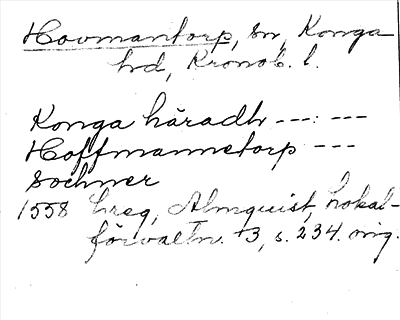 Hovmantorp, sn, Konga
hd, Kronob. l.
Konga häradh ---: ---
Hoffmannetorp ---
Sochner
1558 hreg, Almquist, Lokal-
förvaltn. 3, s. 234. mg.